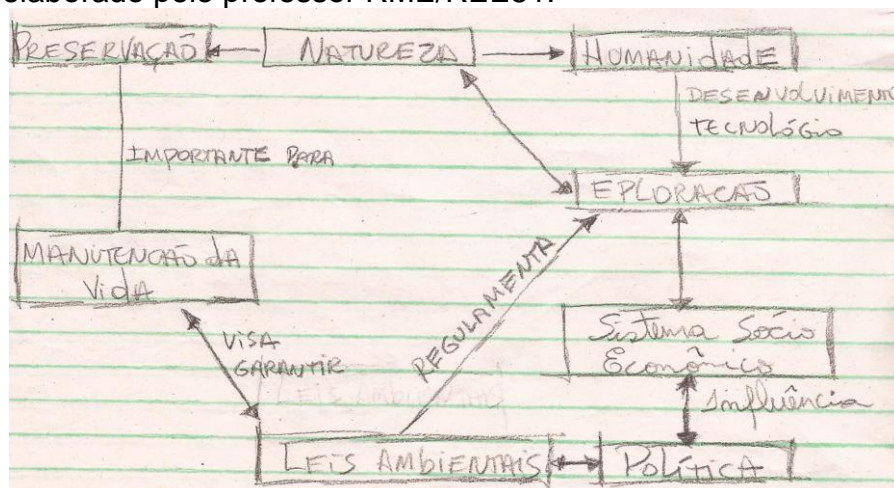 elaborado pelo professor RME/REE37.
PRESERVAÇÃO NATUREZA HUMANIDADE
DESENVOLVIMENTO
TECNOLÓGIO
IMPORTANTE PARA
EPLORACAO
MANUTENCAO dA
VidA
REGULAMENTA
VISA
GARANTIR
Sistema Sócio
Econômico
LEIS AMBIENTAIS
Influência
LEIS AMBIENTAIS Política